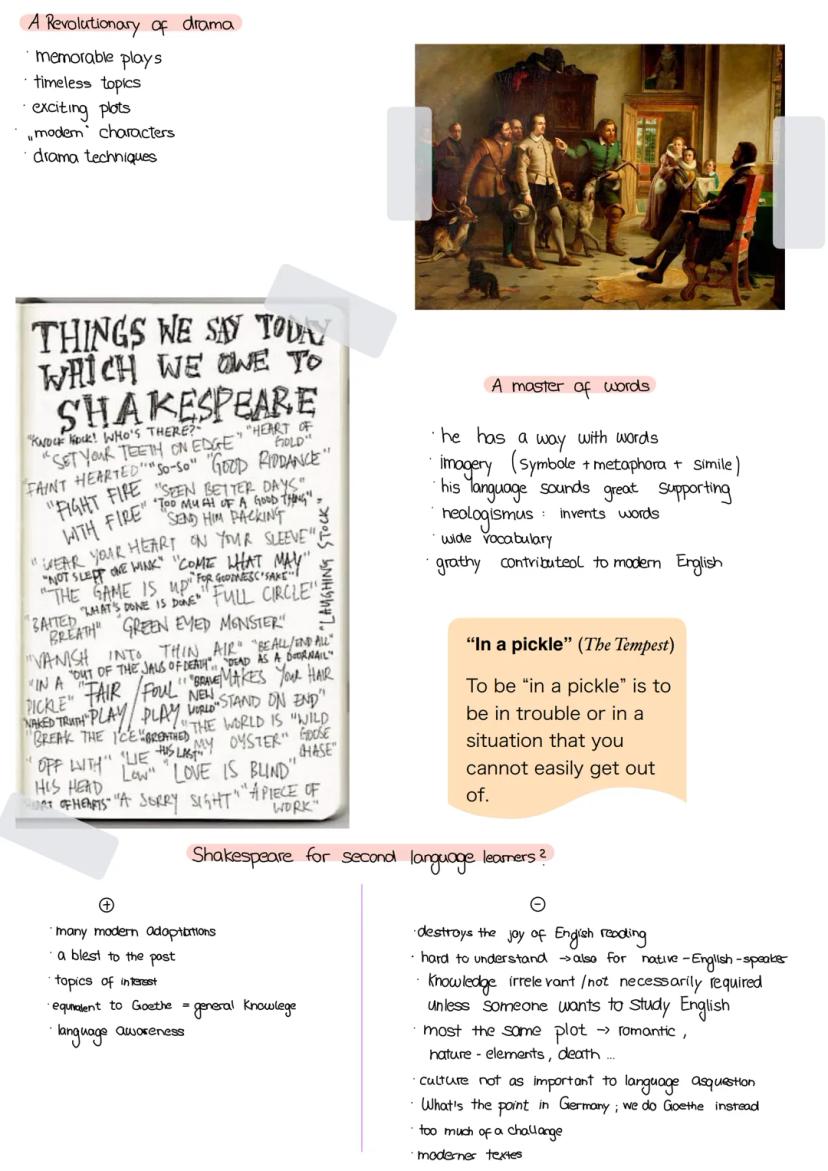 A Revolutionary of drama
· memorable plays
· timeless topics
· exciting plots
· „modern" characters
· drama techniques
THINGS WE SAY TODAY
WHICH WE OWE TO
SHAKESPEARE
"KNOCK KNOCK! WHO'S THERE?" "HEART OF GOLD"
"SET YOUR TEETH ON EDGE"
"FAINT HEARTED" "SO-SO" "GOOD RIDDANCE"
"FIGHT FIRE WITH FIRE" "SEEN BETTER DAYS"
"TOO MUCH OF A GOOD THING"
"SEND HIM PACKING"
"WEAR YOUR HEART ON YOUR SLEEVE"
"LAUGHING STOCK"
"NOT SLEPT ONE WINK" "COME WHAT MAY"
"THE GAME IS UP" "FOR GOODNESS' SAKE"
"WHAT'S DONE IS DONE" "FULL CIRCLE"
"BAITED BREATH" "GREEN EYED MONSTER"
"VANISH INTO THIN AIR" "BE ALL/END ALL"
"OUT OF THE JAWS OF DEATH" "DEAD AS A DOORNAIL"
"IN A PICKLE" "FAIR PLAY/FOUL PLAY" "BRAVE NEW WORLD" "MAKES YOUR HAIR STAND ON END"
"NAKED TRUTH"
"BREAK THE ICE" "BREATHED HIS LAST" "THE WORLD IS MY OYSTER" "WILD GOOSE CHASE"
"OFF WITH HIS HEAD" "LIE LOW" "LOVE IS BLIND"
OF HEARTS" "A SORRY SIGHT" "A PIECE OF WORK"
A master of words
· he has a way with words
· imagery (symbole + metaphora + simile)
· his language sounds great supporting
· neologismus : invents words
· wide vocabulary
· grathy contributeol to modern English
"In a pickle" (The Tempest)
To be "in a pickle" is to
be in trouble or in a
situation that you
cannot easily get out
of.
Shakespeare for second language learners?
+
· many modern adaptations
· a blest to the past
· topics of interest
· equivalent to Goethe = general knowlege
· language awareness
-
· destroys the joy of English reading
· hard to understand → also for native-English-speaker
· Knowledge irrelevant / not necessarily required
unless someone wants to study English
· most the same plot → romantic,
nature-elements, death ...
· culture not as important to language asquestion
· What's the point in Germany ; we do Goethe instead
· too much of a challange
· moderner textes